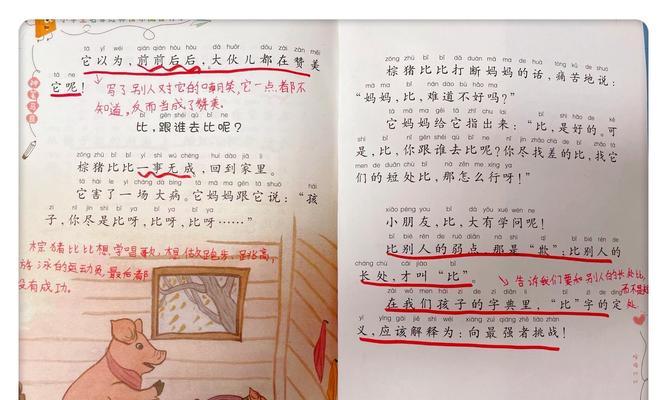 tā yǐ wéi qián qián hòu hòu dà huǒr dōu zài zàn měi
它以为，前前后后，大伙儿都在赞美
tā ne
它呢！
写了别人对它的嘲笑，它一点都不
知道，反而当成了赞美。
bǐ gēn shéi qù bǐ ne
比，跟谁去比呢？
zōng zhū bǐ bǐ yí shì wú chéng huí dào jiā lǐ
棕猪比比一事无成，回到家里。
tā hài le yì chǎng dà bìng tā mā ma gēn tā shuō hái
它害了一场大病。它妈妈跟它说：“孩
zǐ nǐ jìn shì bǐ ya bǐ ya bǐ ya
子，你尽是比呀，比呀，比呀……”
棕猪比比想学唱歌，想做跑步、跳高，
游泳的运动员，最后都
没有成功。
zōng zhū bǐ bǐ dǎ duàn mā ma de huà tòng kǔ de shuō
棕猪比比打断妈妈的话，痛苦地说：
mā ma bǐ nán dào bù hǎo ma
“妈妈，比，难道不好吗？”
tā mā ma gěi tā zhǐ chū lái bǐ shì hǎo de kě
它妈妈给它指出来：“比，是好的。可
shì bǐ nǐ gēn shéi qù bǐ ne nǐ jìn zhǎo chà de bǐ zhǎo tā
是，比，你跟谁去比呢？你尽找差的比，找它
men de duǎn chù bǐ nà zěn me xíng ya
们的短处比，那怎么行呀！”
xiǎo péng you bǐ dà yǒu xué wèn ne
小朋友，比，大有学问呢！
bǐ bié rén de ruò diǎn nà shì qī bǐ bié rén de
比别人的弱点，那是“欺”；比别人的
cháng chù cái jiào bǐ
长处，才叫“比”。
告诉我们要和别人的长处比，
而不是短
处
zài wǒ men hái zi de zì diǎn lǐ bǐ zì de dìng
在我们孩子的字典里，“比”字的定
yì yīng gāi jiě shì wéi xiàng zuì qiáng zhě tiǎo zhàn
义，应该解释为：向最强者挑战！